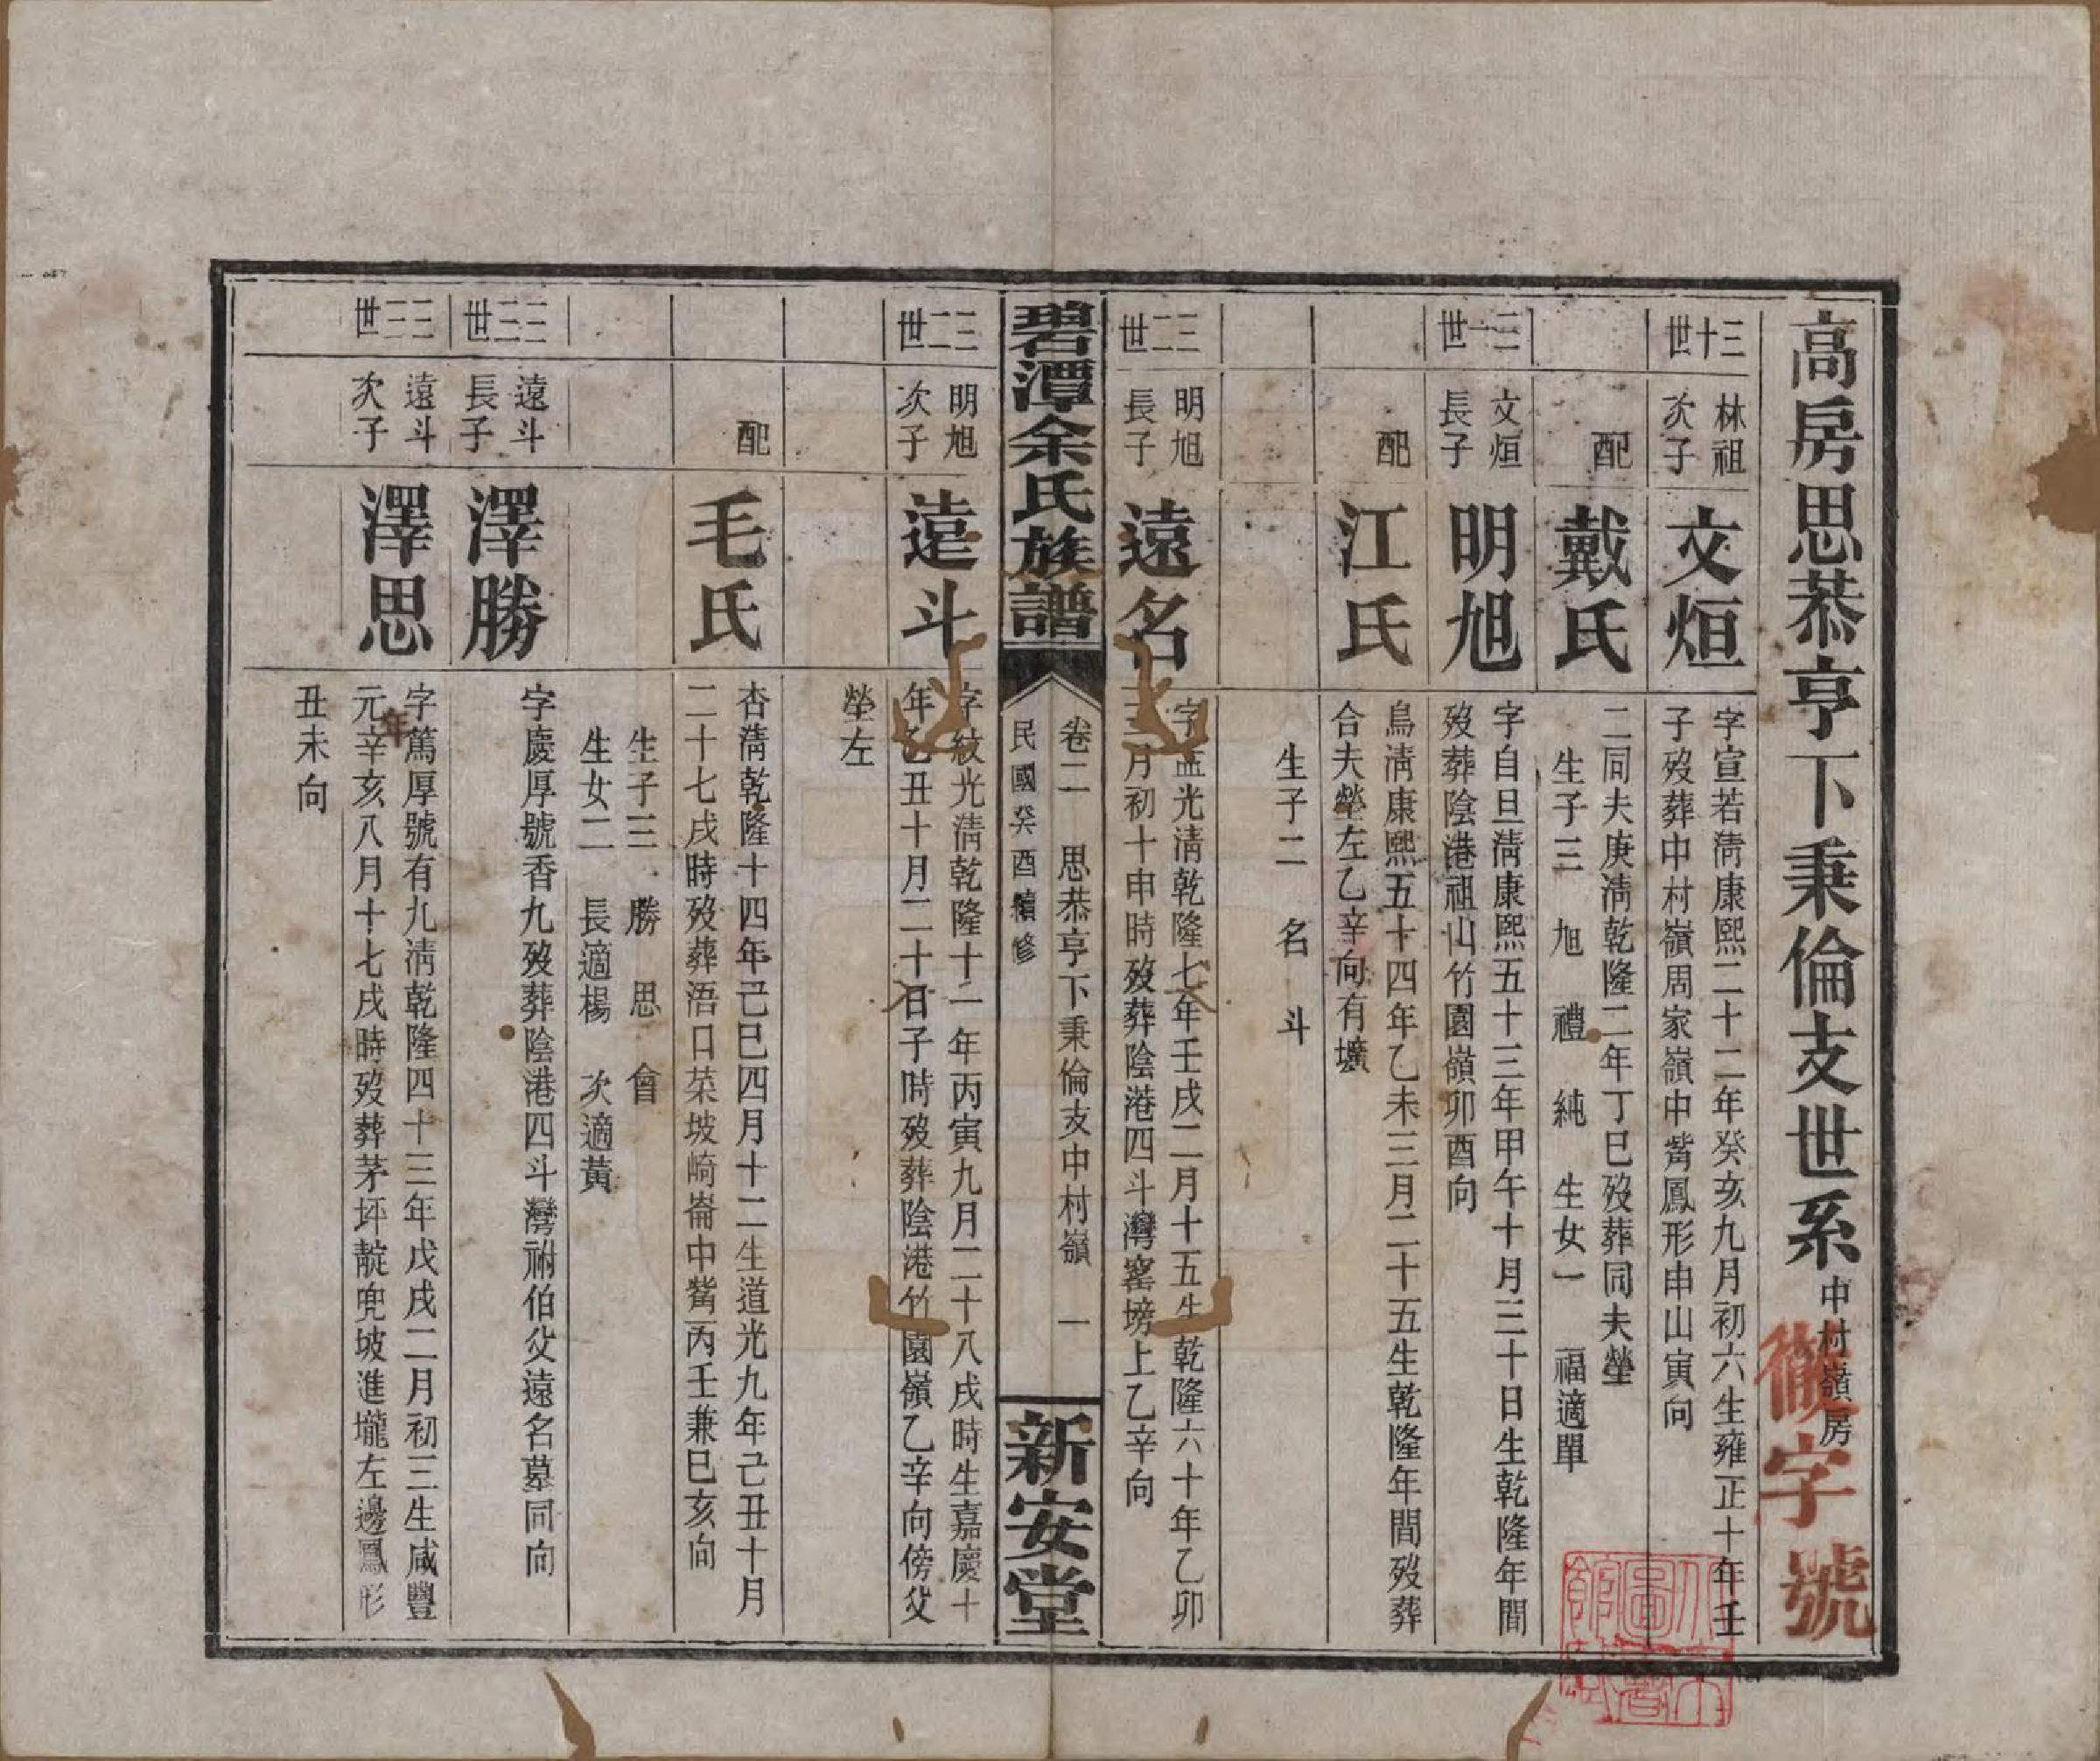 高房思恭亨下秉倫支世系 中村嶺房
徹字號
三十世 林祖次子 文烜 字宣若清康熙二十二年癸亥九月初六生雍正十年壬
子歿葬中村嶺周家嶺中嘴鳳形申山寅向
配 戴氏 二同夫庚清乾隆二年丁巳歿葬同夫塋
生子三 旭 禮 純 生女一 福適單
三一世 文烜長子 明旭 字自旦清康熙五十三年甲午十月三十日生乾隆年間
歿葬陰港祖山竹園嶺卯酉向
配 江氏 鳥清康熙五十四年乙未三月二十五生乾隆年間歿葬
合夫塋左乙辛向有壙
生子二 名 斗
三二世 明旭長子 遠名 字孟光清乾隆七年壬戌二月十五生乾隆六十年乙卯
三月初十申時歿葬陰港四斗灣窰塝上乙辛向
碧潭余氏族譜 卷二 思恭亨下秉倫支中村嶺 一
民國癸酉續修
新安堂
三二世 明旭次子 遠斗 字紋光清乾隆十一年丙寅九月二十八戌時生嘉慶十
年乙丑十月二十日子時歿葬陰港竹園嶺乙辛向傍父
塋左
配 毛氏 杏清乾隆十四年己巳四月十二生道光九年己丑十月
二十七戌時歿葬浯口菜坡崎崙中嘴丙壬兼巳亥向
生子三 勝 思 會
生女二 長適楊 次適黃
三三世 遠斗長子 澤勝 字慶厚號香九歿葬陰港四斗灣祔伯父遠名墓同向
三三世 遠斗次子 澤思 字篤厚號有九清乾隆四十三年戊戌二月初三生咸豐
元年辛亥八月十七戌時歿葬茅坪靛兜坡進壠左邊鳳形
丑未向